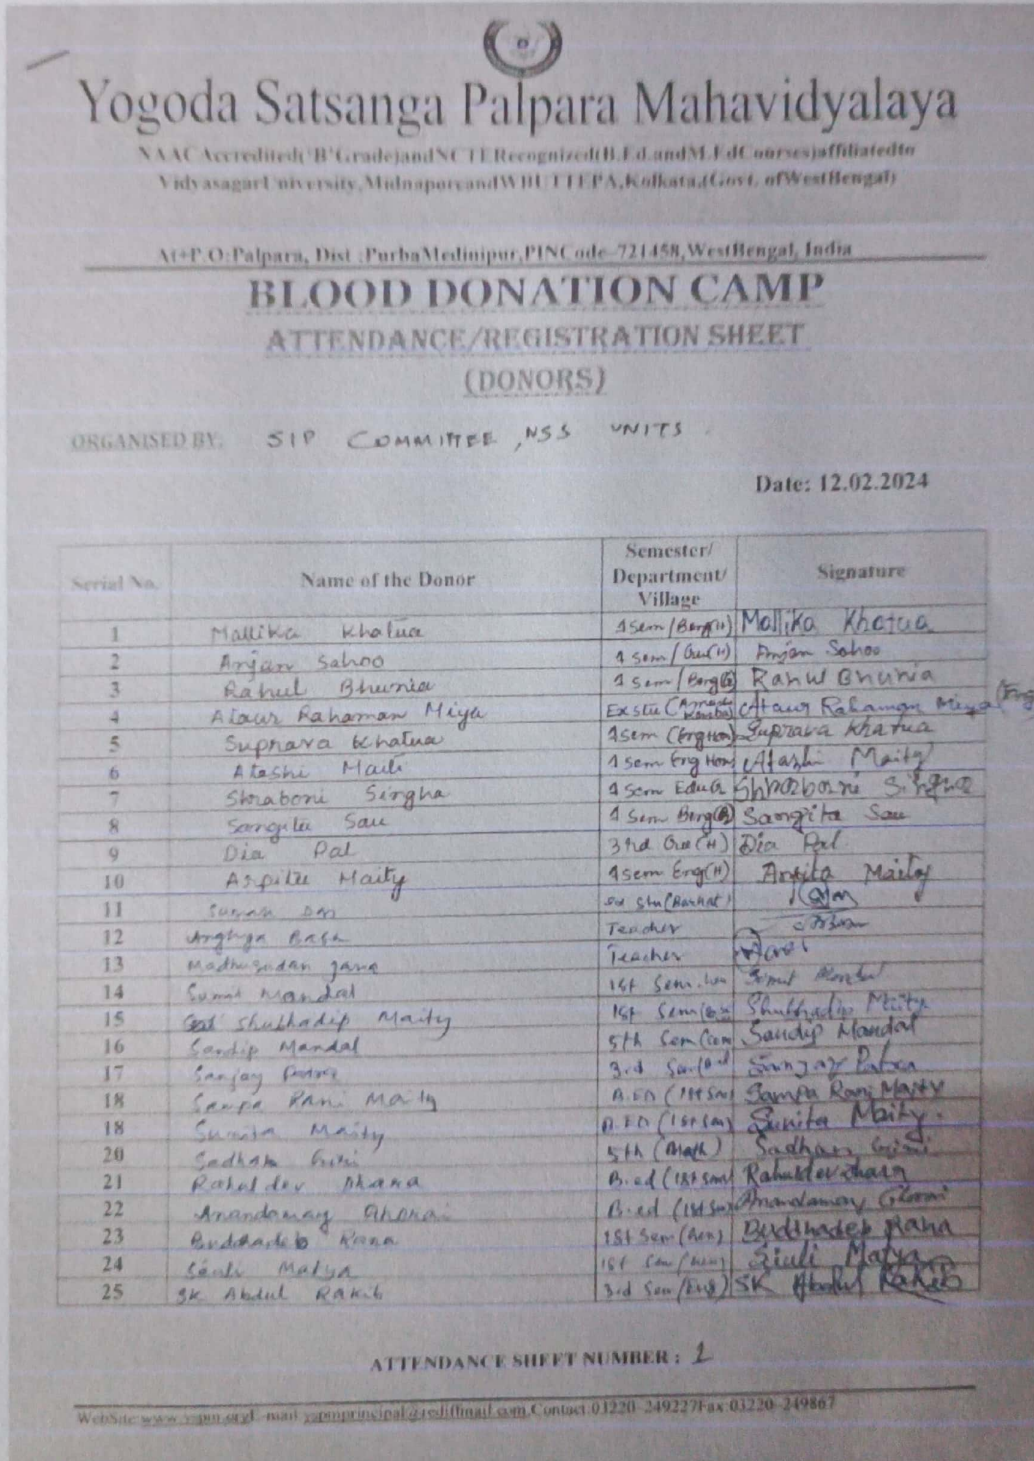 Yogoda Satsanga Palpara Mahavidyalaya
NAAC Accredited('B'Grade)andNCTERecognized(B.Ed.andM.EdCourses)affiliatedto
VidyasagarUniversity,MidnaporeandWBUTTEPA,Kolkata,(Govt. ofWestBengal)
At+P.O:Palpara, Dist :PurbaMedinipur,PINCode-721458,WestBengal, India
BLOOD DONATION CAMP
ATTENDANCE/REGISTRATION SHEET
(DONORS)
ORGANISED BY: SIP COMMITTEE, NSS UNITS.
Date: 12.02.2024
Serial No. Name of the Donor Semester/ Department/ Village Signature
1 Mallika Khatua 1 Sem/Beng(H) Mallika Khatua
2 Anjan Sahoo 1 Sem/ Anjan Sahoo
3 Rahul Bhunia 1 Sem/Beng(G) Rahul Bhunia
4 Ataur Rahaman Miya Ex stu Ataur Rahaman Miya (Eng
5 Suprava Khatua 1 Sem (Eng Hon) Suprava Khatua
6 Atashi Maiti 1 Sem Eng Hon Atashi Maity
7 Shraboni Singha 1 Sem Edu G Shraboni Singha
8 Sangita Sau 1 Sem Beng(G) Sangita Sau
9 Dia Pal 3rd (H) Dia Pal
10 Arpita Maity 1 Sem Eng(H) Arpita Maity
11 Suman
12 Arghya Teacher
13 Madhusudan Jana Teacher
14 Sumit Mandal 1st Sem.
15 Shubhadip Maity 1st Sem Shubhadip Maity
16 Sandip Mandal 5th Sem Sandip Mandal
17 Sanjay Patra 3rd Sanjay Patra
18 Sampa Rani Maity B.ED (1st Sem) Sampa Rani Maity
18 Sunita Maity B.ED (1st Sem) Sunita Maity.
20 Sadhan Giri 5th (Math) Sadhan Giri
21 Rahuldev B.ed (1st Sem) Rahuldev
22 Anandamay Ghorai B.ed (1st Sem) Anandamay Ghorai
23 Buddhadeb Rana 1st Sem Buddhadeb Rana
24 Siuli Matya 1st Sem Siuli Matya
25 SK Abdul Rakib 3rd Sem (Eng) SK Abdul Rakib
ATTENDANCE SHEET NUMBER : 1
WebSite:www.yspm.orgE-mail:yspmprincipal@rediffmail.com,Contact:03220-249227Fax:03220-249867